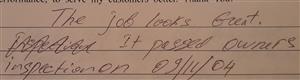 performance, to serve my customers better. Thank You
The job looks Great.
It passed owners
inspection on 09/11/04